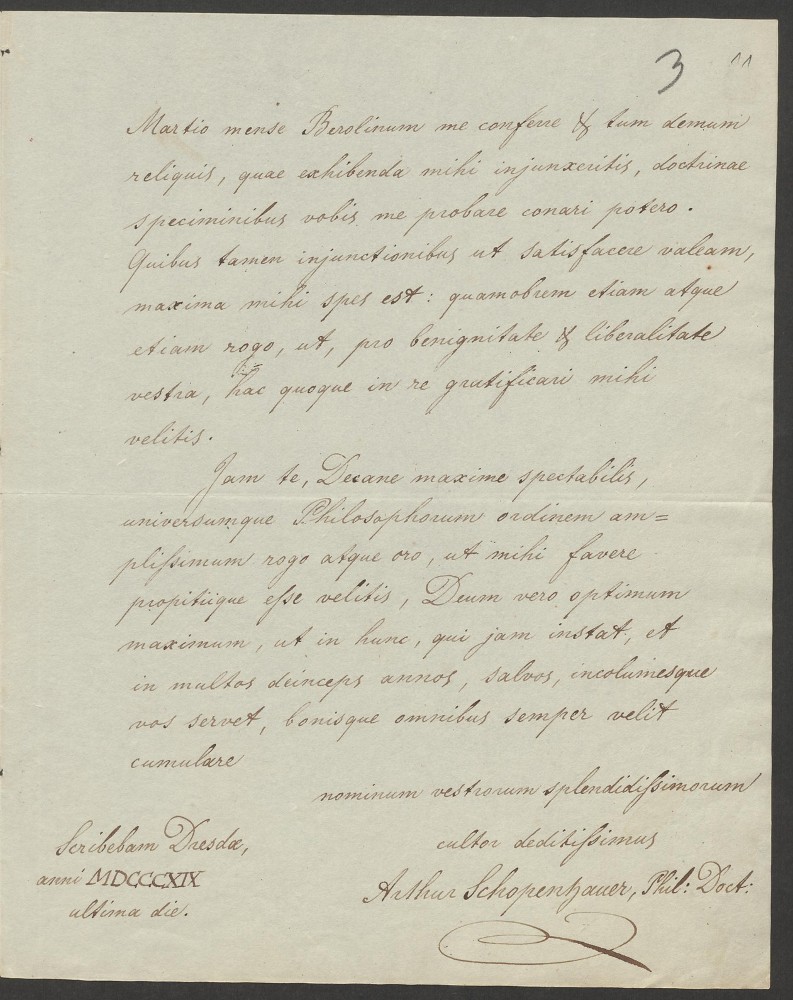 3 11
Martio mense Berolinum me conferre & tum demum
reliquis, quae exhibenda mihi injunxeritis, doctrinae
speciminibus vobis me probare conari potero.
Quibus tamen injunctionibus ut satisfacere valeam,
maxima mihi spes est: quamobrem etiam atque
etiam rogo, ut, pro benignitate & liberalitate
vestra, hac quoque in re gratificari mihi
velitis.
Jam te, Decane maxime spectabilis,
universumque Philosophorum ordinem am=
plissimum rogo atque oro, ut mihi favere
propitiique esse velitis, Deum vero optimum
maximum, ut in hunc, qui jam instat, et
in multos deinceps annos, salvos, incolumesque
vos servet, bonisque omnibus semper velit
cumulare
nominum vestrorum splendidissimorum
cultor deditissimus
Arthur Schopenhauer, Phil: Doct:
Scribebam Dresdæ,
anni MDCCCXIX
ultima die.